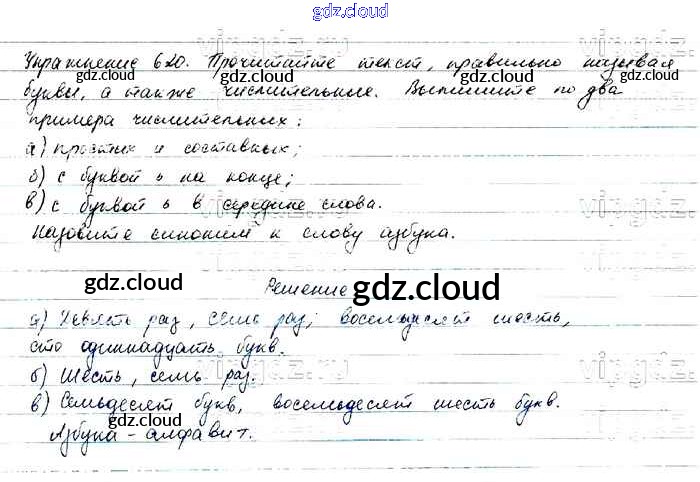 gdz.cloud
Упражнение 620. Прочитайте текст, правильно называя
gdz.cloud gdz.cloud
буквы, а также числительные. Выпишите по два
примера числительных:
а) простых и составных;
б) с буквой ь на конце;
в) с буквой ь в середине слова.
Назовите синоним к слову азбука.
gdz.cloud Решение gdz.cloud gdz.cloud
а) Девять раз, семь раз; восемьдесят шесть,
сто одиннадцать букв.
б) Шесть, семь раз.
в) Семьдесят букв, восемьдесят шесть букв.
Азбука – алфавит.
gdz.cloud gdz.cloud